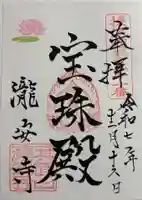 奉拝
令和七年
十二月十六日
宝珠殿
瀧安寺